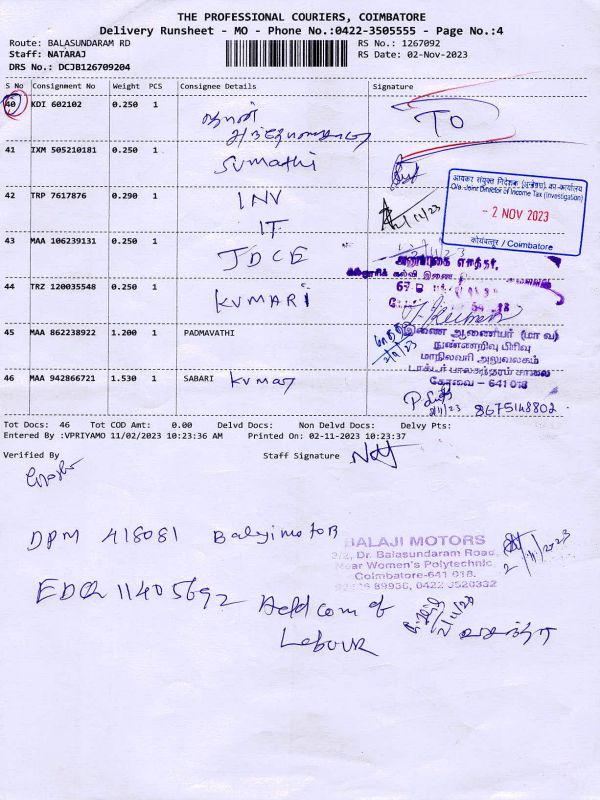 THE PROFESSIONAL COURIERS, COIMBATORE
Delivery Runsheet - MO - Phone No.:0422-3505555 - Page No.:4
Route: BALASUNDARAM RD
RS No.: 1267092
Staff: NATARAJ
RS Date: 02-Nov-2023
DRS No.: DCJB126709204
S No Consignment No Weight PCS Consignee Details Signature
40 KDI 602102 0.250 1
TO
41 IXM 505210181 0.250 1 Sumathi
आयकर संयुक्त निदेशक (अन्वेषण) का कार्यालय
O/o. Joint Director of Income Tax (Investigation)
- 2 NOV 2023
कोयंबत्तूर / Coimbatore
42 TRP 7617876 0.290 1 INV
IT
43 MAA 106239131 0.250 1 JDCE
44 TRZ 120035548 0.250 1 KUMARI
இணை ஆணையர் (மா வ)
நுண்ணறிவு பிரிவு
மாநிலவரி அலுவலகம்
டாக்டர் பாலசுந்தரம் சாலை
கோவை - 641 018
45 MAA 862238922 1.200 1 PADMAVATHI
2/11/23
46 MAA 942866721 1.530 1 SABARI Kumar
2/11/23 8675148802
Tot Docs: 46 Tot COD Amt: 0.00 Delvd Docs: Non Delvd Docs: Delvy Pts:
Entered By :VPRIYAMO 11/02/2023 10:23:36 AM Printed On: 02-11-2023 10:23:37
Verified By Staff Signature
DPM 418081 Balaji motors
BALAJI MOTORS
2/2, Dr. Balasundaram Road,
Near Women's Polytechnic,
Coimbatore-641 018.
89956, 0422 3520332
2/11/2023
EDQ 11405692 Addl com of
Labour
2/11/23
வசந்தா